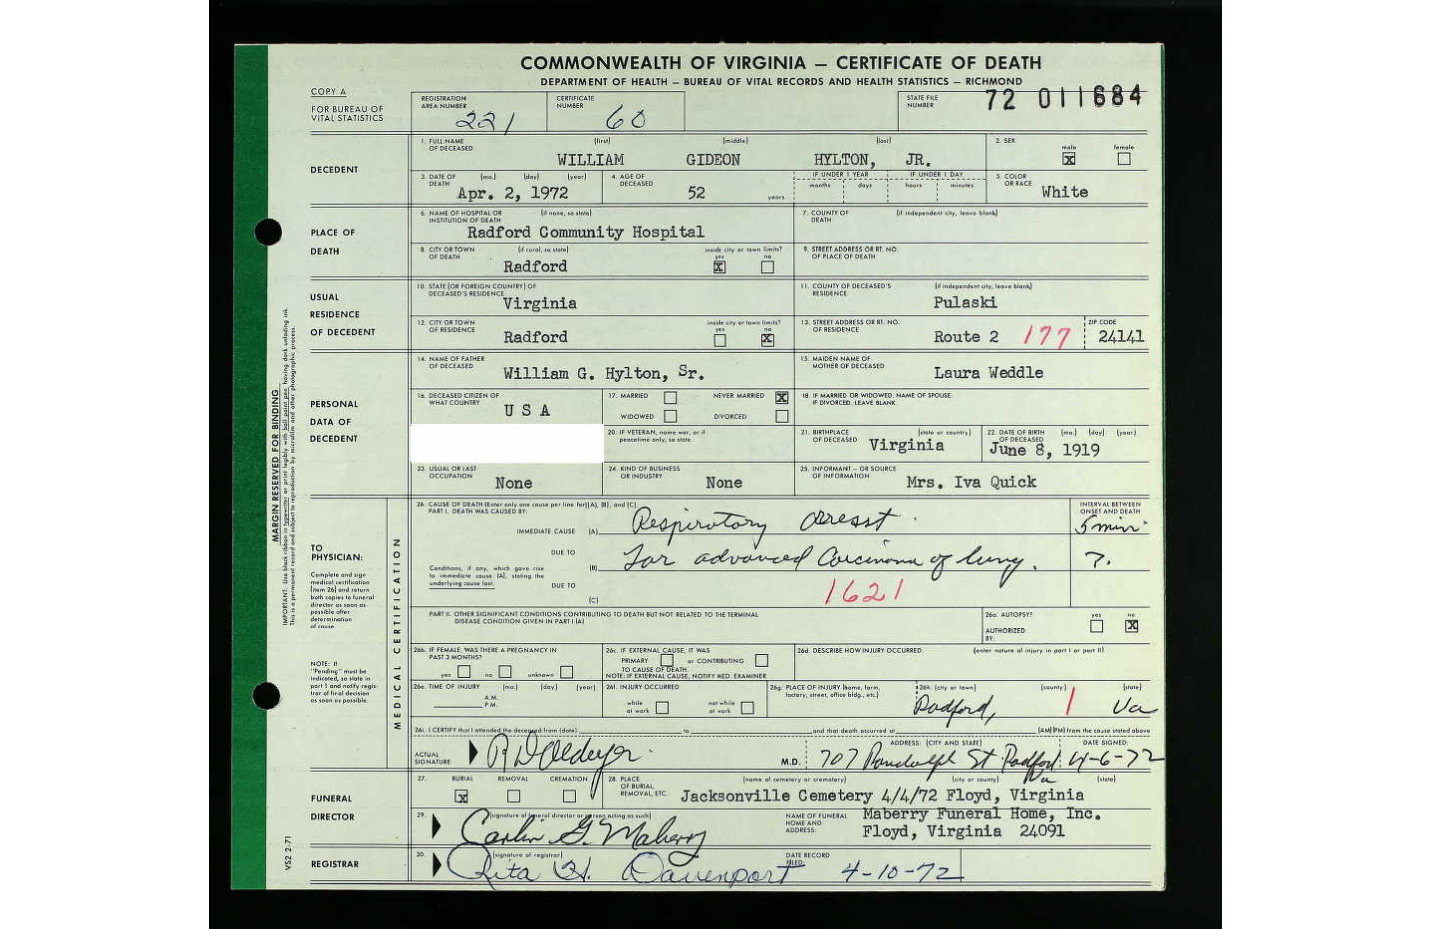 COMMONWEALTH OF VIRGINIA — CERTIFICATE OF DEATH
DEPARTMENT OF HEALTH — BUREAU OF VITAL RECORDS AND HEALTH STATISTICS — RICHMOND
COPY A
FOR BUREAU OF VITAL STATISTICS
REGISTRATION AREA NUMBER 221
CERTIFICATE NUMBER 60
STATE FILE NUMBER 72 011684
DECEDENT
1. FULL NAME OF DECEASED (first) (middle) (last)
WILLIAM GIDEON HYLTON, JR.
2. SEX male X female
3. DATE OF DEATH (mo.) (day) (year) Apr. 2, 1972
4. AGE OF DECEASED 52 years
IF UNDER 1 YEAR months days
IF UNDER 1 DAY hours minutes
5. COLOR OR RACE White
PLACE OF DEATH
6. NAME OF HOSPITAL OR INSTITUTION OF DEATH (if none, so state)
Radford Community Hospital
7. COUNTY OF DEATH (if independent city, leave blank)
8. CITY OR TOWN OF DEATH (if rural, so state) Radford
inside city or town limits? yes X no
9. STREET ADDRESS OR RT. NO. OF PLACE OF DEATH
USUAL RESIDENCE OF DECEDENT
10. STATE (OR FOREIGN COUNTRY) OF DECEASED'S RESIDENCE Virginia
11. COUNTY OF DECEASED'S RESIDENCE (if independent city, leave blank) Pulaski
12. CITY OR TOWN OF RESIDENCE Radford
inside city or town limits? yes no X
13. STREET ADDRESS OR RT. NO. OF RESIDENCE Route 2 177
ZIP CODE 24141
PERSONAL DATA OF DECEDENT
14. NAME OF FATHER OF DECEASED William G. Hylton, Sr.
15. MAIDEN NAME OF MOTHER OF DECEASED Laura Weddle
16. DECEASED CITIZEN OF WHAT COUNTRY U S A
17. MARRIED NEVER MARRIED X
WIDOWED DIVORCED
18. IF MARRIED OR WIDOWED, NAME OF SPOUSE. IF DIVORCED, LEAVE BLANK.
20. IF VETERAN, name war, or if peacetime only, so state
21. BIRTHPLACE OF DECEASED (state or country) Virginia
22. DATE OF BIRTH OF DECEASED (mo.) (day) (year) June 8, 1919
23. USUAL OR LAST OCCUPATION None
24. KIND OF BUSINESS OR INDUSTRY None
25. INFORMANT — OR SOURCE OF INFORMATION Mrs. Iva Quick
MARGIN RESERVED FOR BINDING
MEDICAL CERTIFICATION
TO PHYSICIAN:
Complete and sign medical certification (item 26) and return both copies to funeral director as soon as possible after determination of cause.
NOTE: If "Pending" must be indicated, so state in part I and notify registrar of final decision as soon as possible.
26. CAUSE OF DEATH (Enter only one cause per line for (A), (B), and (C)
PART I. DEATH WAS CAUSED BY:
INTERVAL BETWEEN ONSET AND DEATH
IMMEDIATE CAUSE (A) Respiratory arrest. 5 min
DUE TO
(B) Far advanced Carcinoma of lung. ?.
Conditions, if any, which gave rise to immediate cause (A), stating the underlying cause last.
DUE TO
(C) 1621
PART II. OTHER SIGNIFICANT CONDITIONS CONTRIBUTING TO DEATH BUT NOT RELATED TO THE TERMINAL DISEASE CONDITION GIVEN IN PART I (A)
26a. AUTOPSY? yes no X
AUTHORIZED BY:
26b. IF FEMALE, WAS THERE A PREGNANCY IN PAST 3 MONTHS?
yes no unknown
26c. IF EXTERNAL CAUSE, IT WAS
PRIMARY or CONTRIBUTING
TO CAUSE OF DEATH.
NOTE: IF EXTERNAL CAUSE, NOTIFY MED. EXAMINER
26d. DESCRIBE HOW INJURY OCCURRED. (enter nature of injury in part I or part II)
26e. TIME OF INJURY (mo.) (day) (year)
A.M.
P.M.
26f. INJURY OCCURRED
while at work not while at work
26g. PLACE OF INJURY (home, farm, factory, street, office bldg., etc.)
26h. (city or town) (county) (state)
Radford, 1 Va
26i. I CERTIFY that I attended the deceased from (date) to and that death occurred at (AM)(PM) from the cause stated above
ACTUAL SIGNATURE M.D.
ADDRESS: (CITY AND STATE) DATE SIGNED:
707 Randolph St Radford Va 4-6-72
FUNERAL DIRECTOR
27. BURIAL X REMOVAL CREMATION
28. PLACE OF BURIAL, REMOVAL, ETC. (name of cemetery or crematory) (city or county) (state)
Jacksonville Cemetery 4/4/72 Floyd, Virginia
29. (signature of funeral director or person acting as such)
Carlin G. Maberry
NAME OF FUNERAL HOME AND ADDRESS: Maberry Funeral Home, Inc.
Floyd, Virginia 24091
REGISTRAR
30. (signature of registrar)
Rita H. Davenport
DATE RECORD FILED: 4-10-72
VS2 2-71